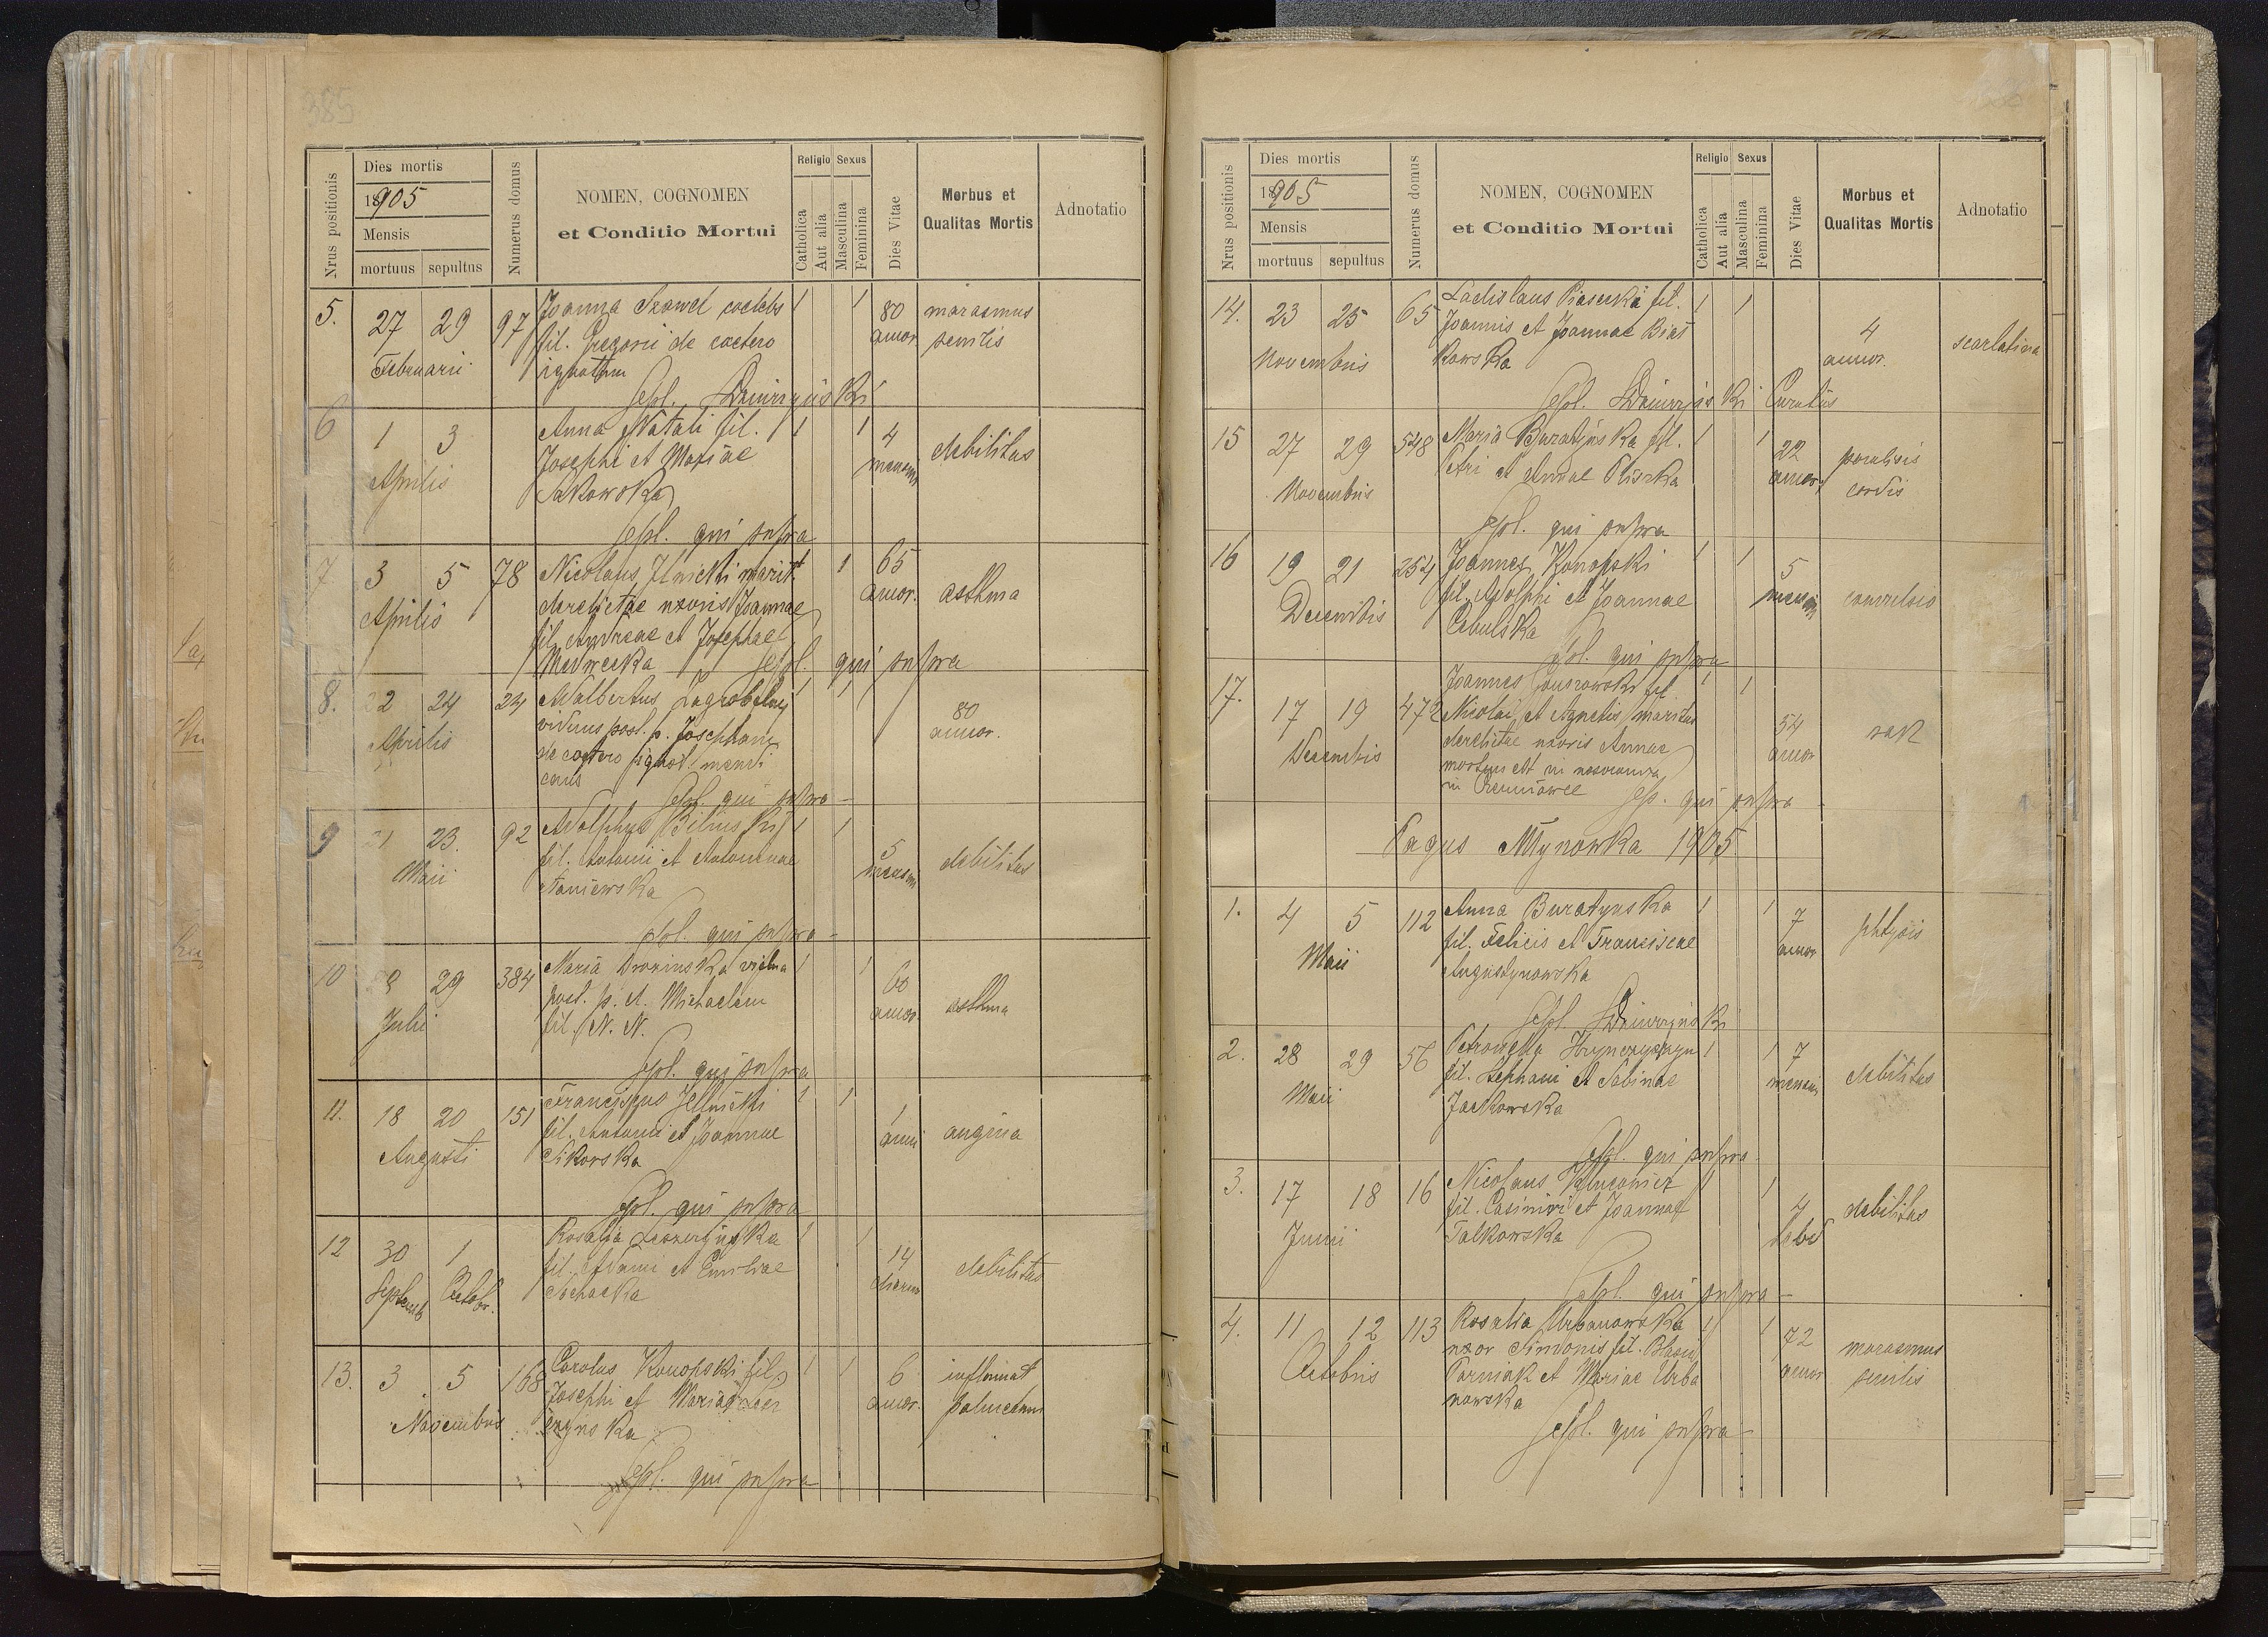 385
Nrus positionis
Dies mortis
1905
Mensis
mortuus sepultus
Numerus domus
NOMEN, COGNOMEN
et Conditio Mortui
Religio
Catholica
Aut alia
Sexus
Masculina
Feminina
Dies Vitae
Morbus et
Qualitas Mortis
Adnotatio
5. 27 29 97 Joanna coelebs 1 1 80 marasmus
Februarii fil. Gregorii de coetero annor. senilis
ignotum
Sepl.
6 1 3 Anna Natali fil. 1 1 4 debilitas
Aprilis Josephi et Mariae mensium
Sakowska
Sepl. qui supra
7 3 5 78 Nicolaus Ilnicki marit. 1 65 asthma
Aprilis derelictae uxoris Joannae annor.
fil. Andreae et Josephae
Medwecka Sepl. qui supra
8. 22 24 24 Adalbertus Zagrobelny 1 1 80
Aprilis viduus post. p. Josepham annor.
de coetero ignot. mendi
cans
Sepl. qui supra
9 21 23. 92 Adolphus Biliński 1 1 5 debilitas
Maii fil. Antonii et Antoninae mensium
Sepl. qui supra
10 28 29 384 Maria vidua 1 1 60 asthma
Julii post. p. d. Michaelem annor.
fil. N. N.
Sepl. qui supra
11. 18 20 151 Franciscus 1 1 1 angina
Augusti fil. Antonii et Joannae anni
Sikorska
Sepl. qui supra
12 30 1 Rosalia 1 1 14 debilitas
Septemb. Octobr. fil. et Emiliae dierum
13. 3 5 168 Carolus Konopski fil. 1 1 6 inflamat
Novembris Josephi et Mariae annor. pulmonum
Sepl. qui supra
Nrus positionis
Dies mortis
1905
Mensis
mortuus sepultus
Numerus domus
NOMEN, COGNOMEN
et Conditio Mortui
Religio
Catholica
Aut alia
Sexus
Masculina
Feminina
Dies Vitae
Morbus et
Qualitas Mortis
Adnotatio
14. 23 25 65 Ladislaus Piasecki fil. 1 1 4 scarlatina
Novembris Joannis et Joannae Biał annor.
kowska
Sepl.
15 27 29 548 Maria Buratyńska fil. 1 1 22 paralisis
Novembris Petri et Annae Oliszka annor. cordis
Sepl. qui supra
16 19 21 254 Joannes Konopski 1 1 5 convulsio
Decembris fil. Adolphi et Joannae mensium
Cebulska
Sepl. qui supra
17. 17 19 472 Joannes fil. 1 1 54 rak
Decembris Nicolai et Agnetis maritus annor
derelictae uxoris Annae
mortuus est in
in Sep. qui supra
Pagus Młynowka 1905
1. 4 5 112 Anna Buratynska 1 1 7 phtysis
Maii fil. Felicis et Franciscae annor
Augustynowska
Sepl.
2. 28 29 56 Petronella 1 1 7 debilitas
Maii fil. Stephani et Sabinae mensium
Jackowska
Sepl. qui supra
3. 17 18 16 Nicolaus 1 1 4 debilitas
Junii fil. Casimiri et Joannae
Falkowska
Sepl. qui supra
4. 11 12 113 Rosalia Urbanowska 1 1 72 marasmus
Octobris uxor Simonis fil. Blasii annor senilis
Parniak et Mariae Urba
nowska
Sepl. qui supra